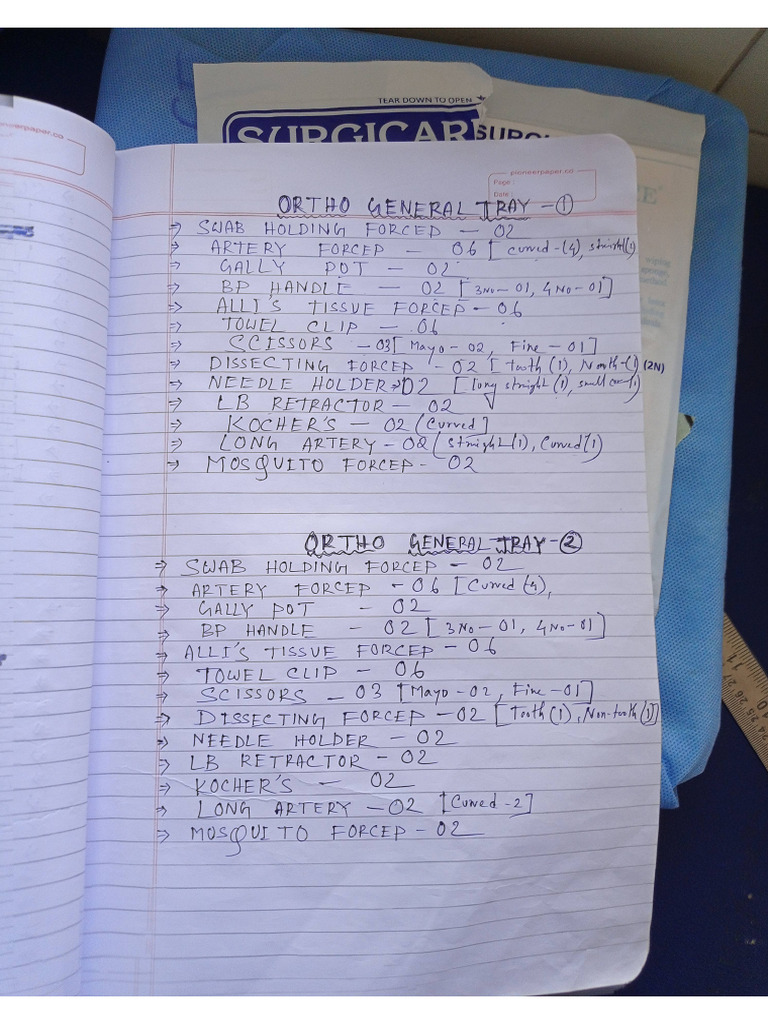 pioneerpaper.co
TEAR DOWN TO OPEN
SURGICAR
SURGI
pioneerpaper.co
Page :
Date :
ORTHO GENERAL TRAY - ①
⇒ SWAB HOLDING FORCED - 02
⇒ ARTERY FORCED - 06 [ curved -(4), straight(1)
⇒ GALLY POT - 02
⇒ BP HANDLE - 02 [ 3No - 01, 4No - 01]
⇒ ALLI'S TISSUE FORCEP - 06
⇒ TOWEL CLIP - 06
⇒ SCISSORS - 03 [ Mayo - 02, Fine - 01]
⇒ DISSECTING FORCEP - 02 [ tooth (1), Nonth - (1) (2N)
⇒ NEEDLE HOLDER 02 [long straight (1), small (1)
⇒ LB RETRACTOR - 02
⇒ KOCHER'S - 02 (Curved]
⇒ LONG ARTERY - 02 ( straight (1), Curved (1)
⇒ MOSQUITO FORCEP - 02
ORTHO GENERAL TRAY - ②
⇒ SWAB HOLDING FORCEP - 02
⇒ ARTERY FORCEP - 06 [ Curved (4),
⇒ GALLY POT - 02
⇒ BP HANDLE - 02 [ 3No - 01, 4No - 01]
⇒ ALLI'S TISSUE FORCEP - 06
⇒ TOWEL CLIP - 06
⇒ SCISSORS - 03 [Mayo - 02, Fine - 01]
⇒ DISSECTING FORCEP - 02 [Tooth (1), Non-tooth (1)]
⇒ NEEDLE HOLDER - 02
⇒ LB RETRACTOR - 02
⇒ KOCHER'S - 02
⇒ LONG ARTERY - 02 [Curved - 2]
⇒ MOSQUITO FORCEP - 02